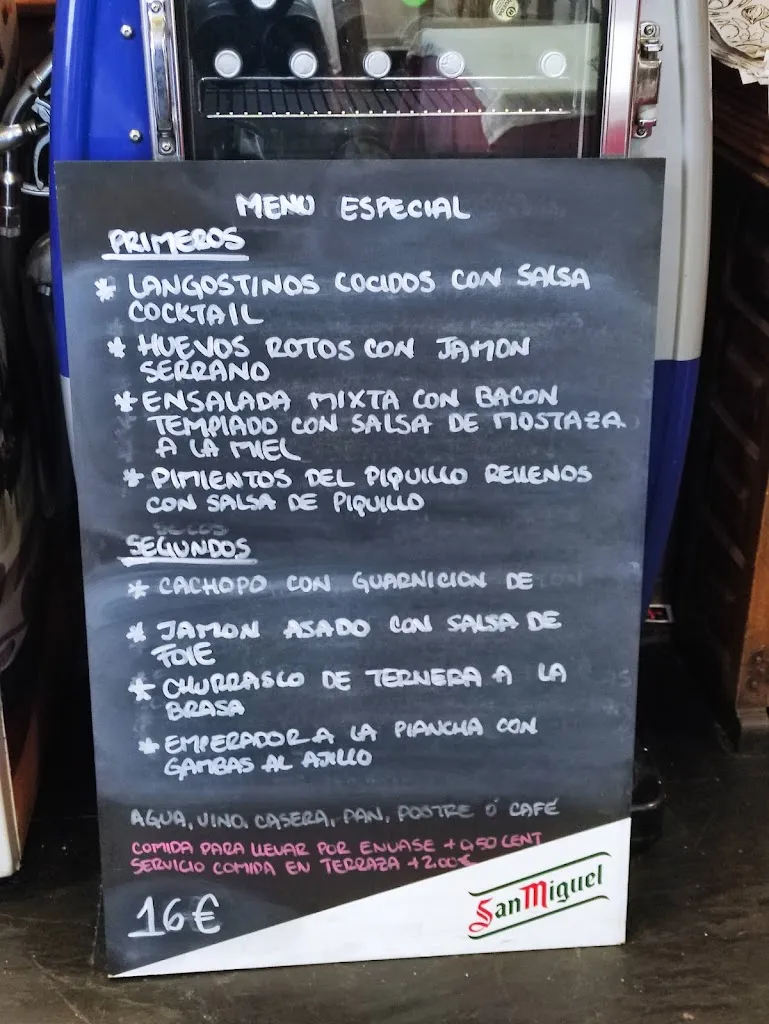 MENU ESPECIAL
PRIMEROS
* LANGOSTINOS COCIDOS CON SALSA
COCKTAIL
* HUEVOS ROTOS CON JAMON
SERRANO
* ENSALADA MIXTA CON BACON
TEMPLADO CON SALSA DE MOSTAZA
A LA MIEL
* PIMIENTOS DEL PIQUILLO RELLENOS
CON SALSA DE PIQUILLO
SEGUNDOS
* CACHOPO CON GUARNICION DE
* JAMON ASADO CON SALSA DE
FOIE
* CHURRASCO DE TERNERA A LA
BRASA
* EMPERADOR A LA PLANCHA CON
GAMBAS AL AJILLO
AGUA, VINO, CASERA, PAN, POSTRE Ó CAFÉ
COMIDA PARA LLEVAR POR ENVASE +0,50 CENT
SERVICIO COMIDA EN TERRAZA +2.00€
16€
San Miguel